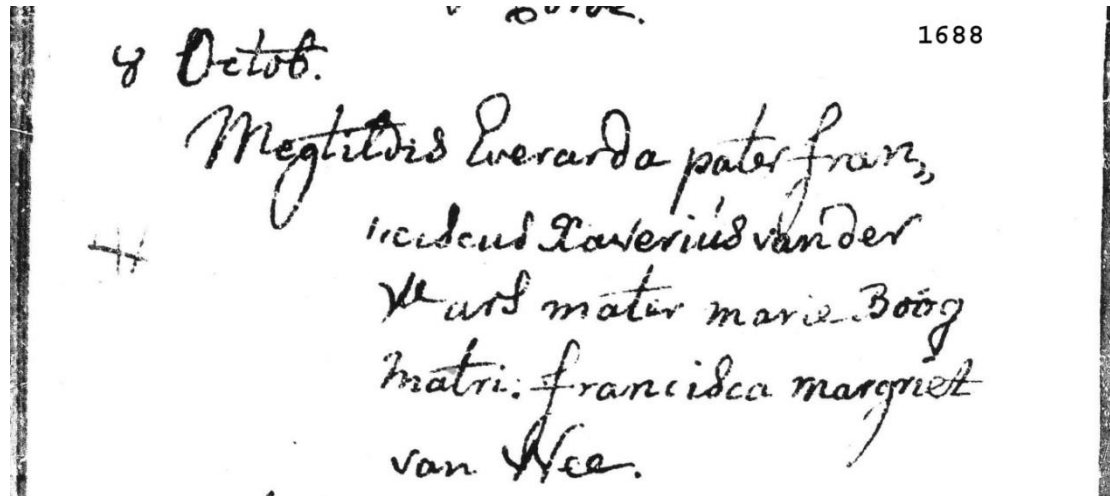 1688
8 Octob.
Megtildis Everarda pater fran„
ciscus Xaverius vander
mater marie Boog
Matri. francisca margriet
van